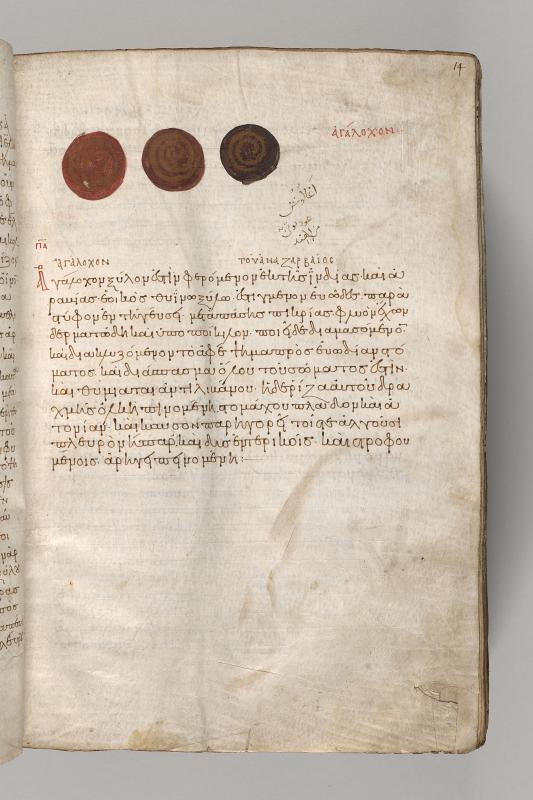 14
ἀγάλοχον
πα
ἀγάλοχον τοῦ ἀναζαρβαίος
Ἀγάλοχον ξύλον ἐστὶν φερόμενον ἐκ τῆς ἰνδίας καὶ ἀ
ραβίας ἐοικὸς θυίνω ξύλω. ἐστιγμένον εὐῶδες παρα
στύφον ἐν τῆ γεύσει. μετὰ πάσης πικρίας φλοιὸν ἔχον
δερματώδη καὶ ὑποποίκιλον. ποιεῖ δὲ διαμασόμενον
καὶ διακλυζόμενον τὸ ἀφέψημα πρὸς εὐωδίαν στό
ματος. καὶ διάπασμα ὅλου τοῦ σώματος ἐστὶν.
καὶ θυμιᾶται ἀντὶ λιβάνου. ἡ δὲ ρίζα αὐτοῦ δρα
χμῆς ὁλκὴ πινομένη στομάχου πλάδον καὶ ἀ
τονίαν. καὶ καῦσον παρηγορεῖ τοῖς τε ἀλγοῦσι
πλευρὸν ἢ ἧπαρ. καὶ δυσεντερικοῖς. καὶ στροφου
μένοις ἀρήγει πινομένη: